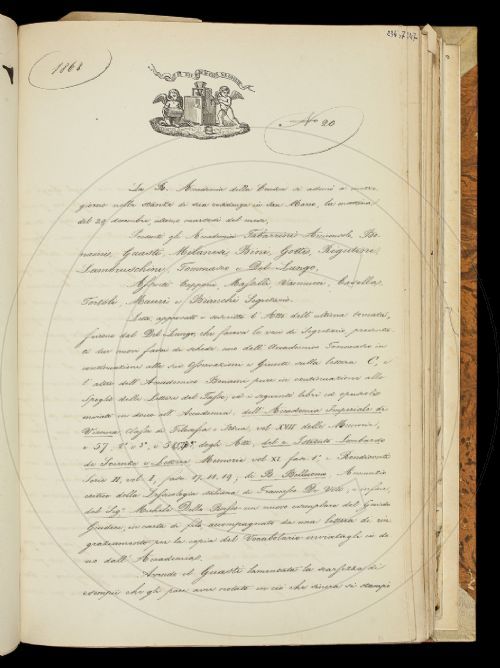 1868
N.º 20
La R. Accademia della Crusca si adunò a mezzo
giorno nelle stanze di sua residenza in San Marco, la mattina
del 29 decembre, ultimo martedì del mese.
Presenti gli Accademici Tabarrini Arciconsolo, Bo-
naini, Guasti, Milanesi, Binx, Gotti, Rigutini,
Lambruschini, Tommaseo e Del Lungo.
Assenti Capponi, Mafalli, Vannucci, Casella,
Tortoli, Mauri e Bianchi Segretario.
Letto, approvato e sottoscritto l'Atto dell'ultima tornata,
furono dal Del Lungo, che faceva le veci di Segretario, presenta-
ti due nuovi fasci di schede uno dell'Accademico Tommaseo in
continuazione alle sue Osservazioni e Giunte sulla lettera C, e
l'altro dell'Accademico Bonaini pure in continuazione allo
spoglio delle Lettere del Tasso; ed i seguenti libri ed opuscoli
inviati in dono all'Accademia, dell'Accademia Imperiale di
Vienna, Classe di Filosofia e Storia, vol. XVII delle Memorie,
e 57, 2º e 3º, e degli Atti, del R. Istituto Lombardo
di Scienze e Lettere Memorie vol. XI fasc. 1º, e Rendiconti
Serie II, vol. I, fasc. 17, 18, 19; di P. Annunzio
critico della italiana di Francesco De Vito; e infine
dal Sigr. Michele Dello Russo un nuovo esemplare del Guido
Giudice, in carta di filo, accompagnato da una lettera di rin-
graziamento per la copia del Vocabolario inviatagli in do-
no dall'Accademia.
Avendo il Guasti lamentato la scarsezza di
esempi che gli pare aver notato in ciò che sinora si stampò